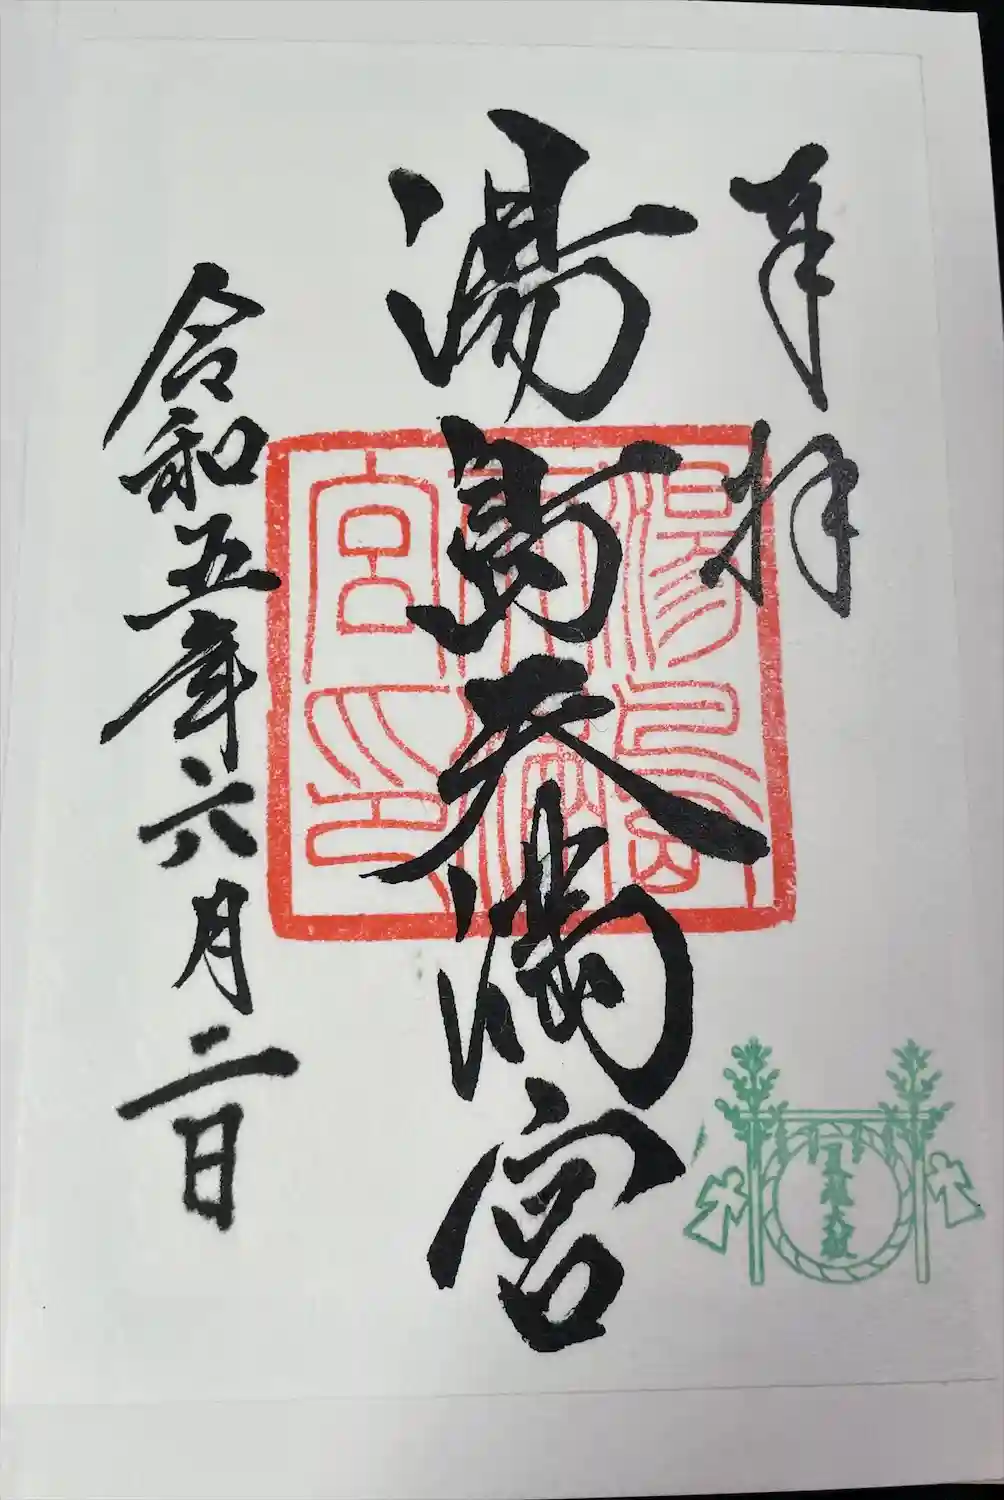 奉拝
湯島天満宮
湯島天満宮印
令和五年六月二日
夏越大祓